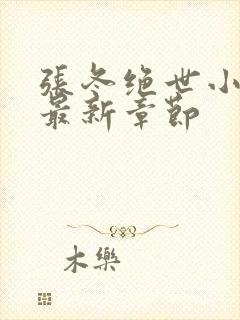 張冬绝世小
最新章節
木樂